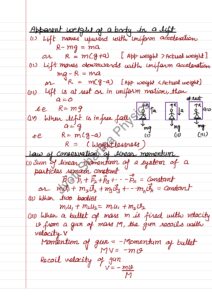 Apparent weight of a body in a lift
(i) Lift moves upward with uniform acceleration
R - mg = ma
or R = m(g+a) [App weight > Actual weight]
(ii) Lift moves downwards with uniform acceleration
mg - R = ma
or R = m(g-a) [App weight < Actual weight]
(iii) Lift is at rest or in uniform motion then
a = 0
ie R = mg
(iv) When lift is in free fall
a = g
ie R = m(g-a)
R = (Weightless)
mg mg mg
(i) (ii) (iii)
Law of Conservation of linear momentum
(i) Sum of linear momentum of a system of
particles remain constant
P₁ + P₂ + P₃ + --- Pₙ = Constant
or m₁v₁ + m₂v₂ + m₃v₃ + --- mₙvₙ = Constant
(ii) When two bodies
m₁u₁ + m₂u₂ = m₁v₁ + m₂v₂
(iii) When a bullet of mass m is fired with velocity
v from a gun of mass M, the gun recoils with
velocity V
Momentum of gun = -Momentum of bullet
MV = -mv
Recoil velocity of gun
V = -mv/M